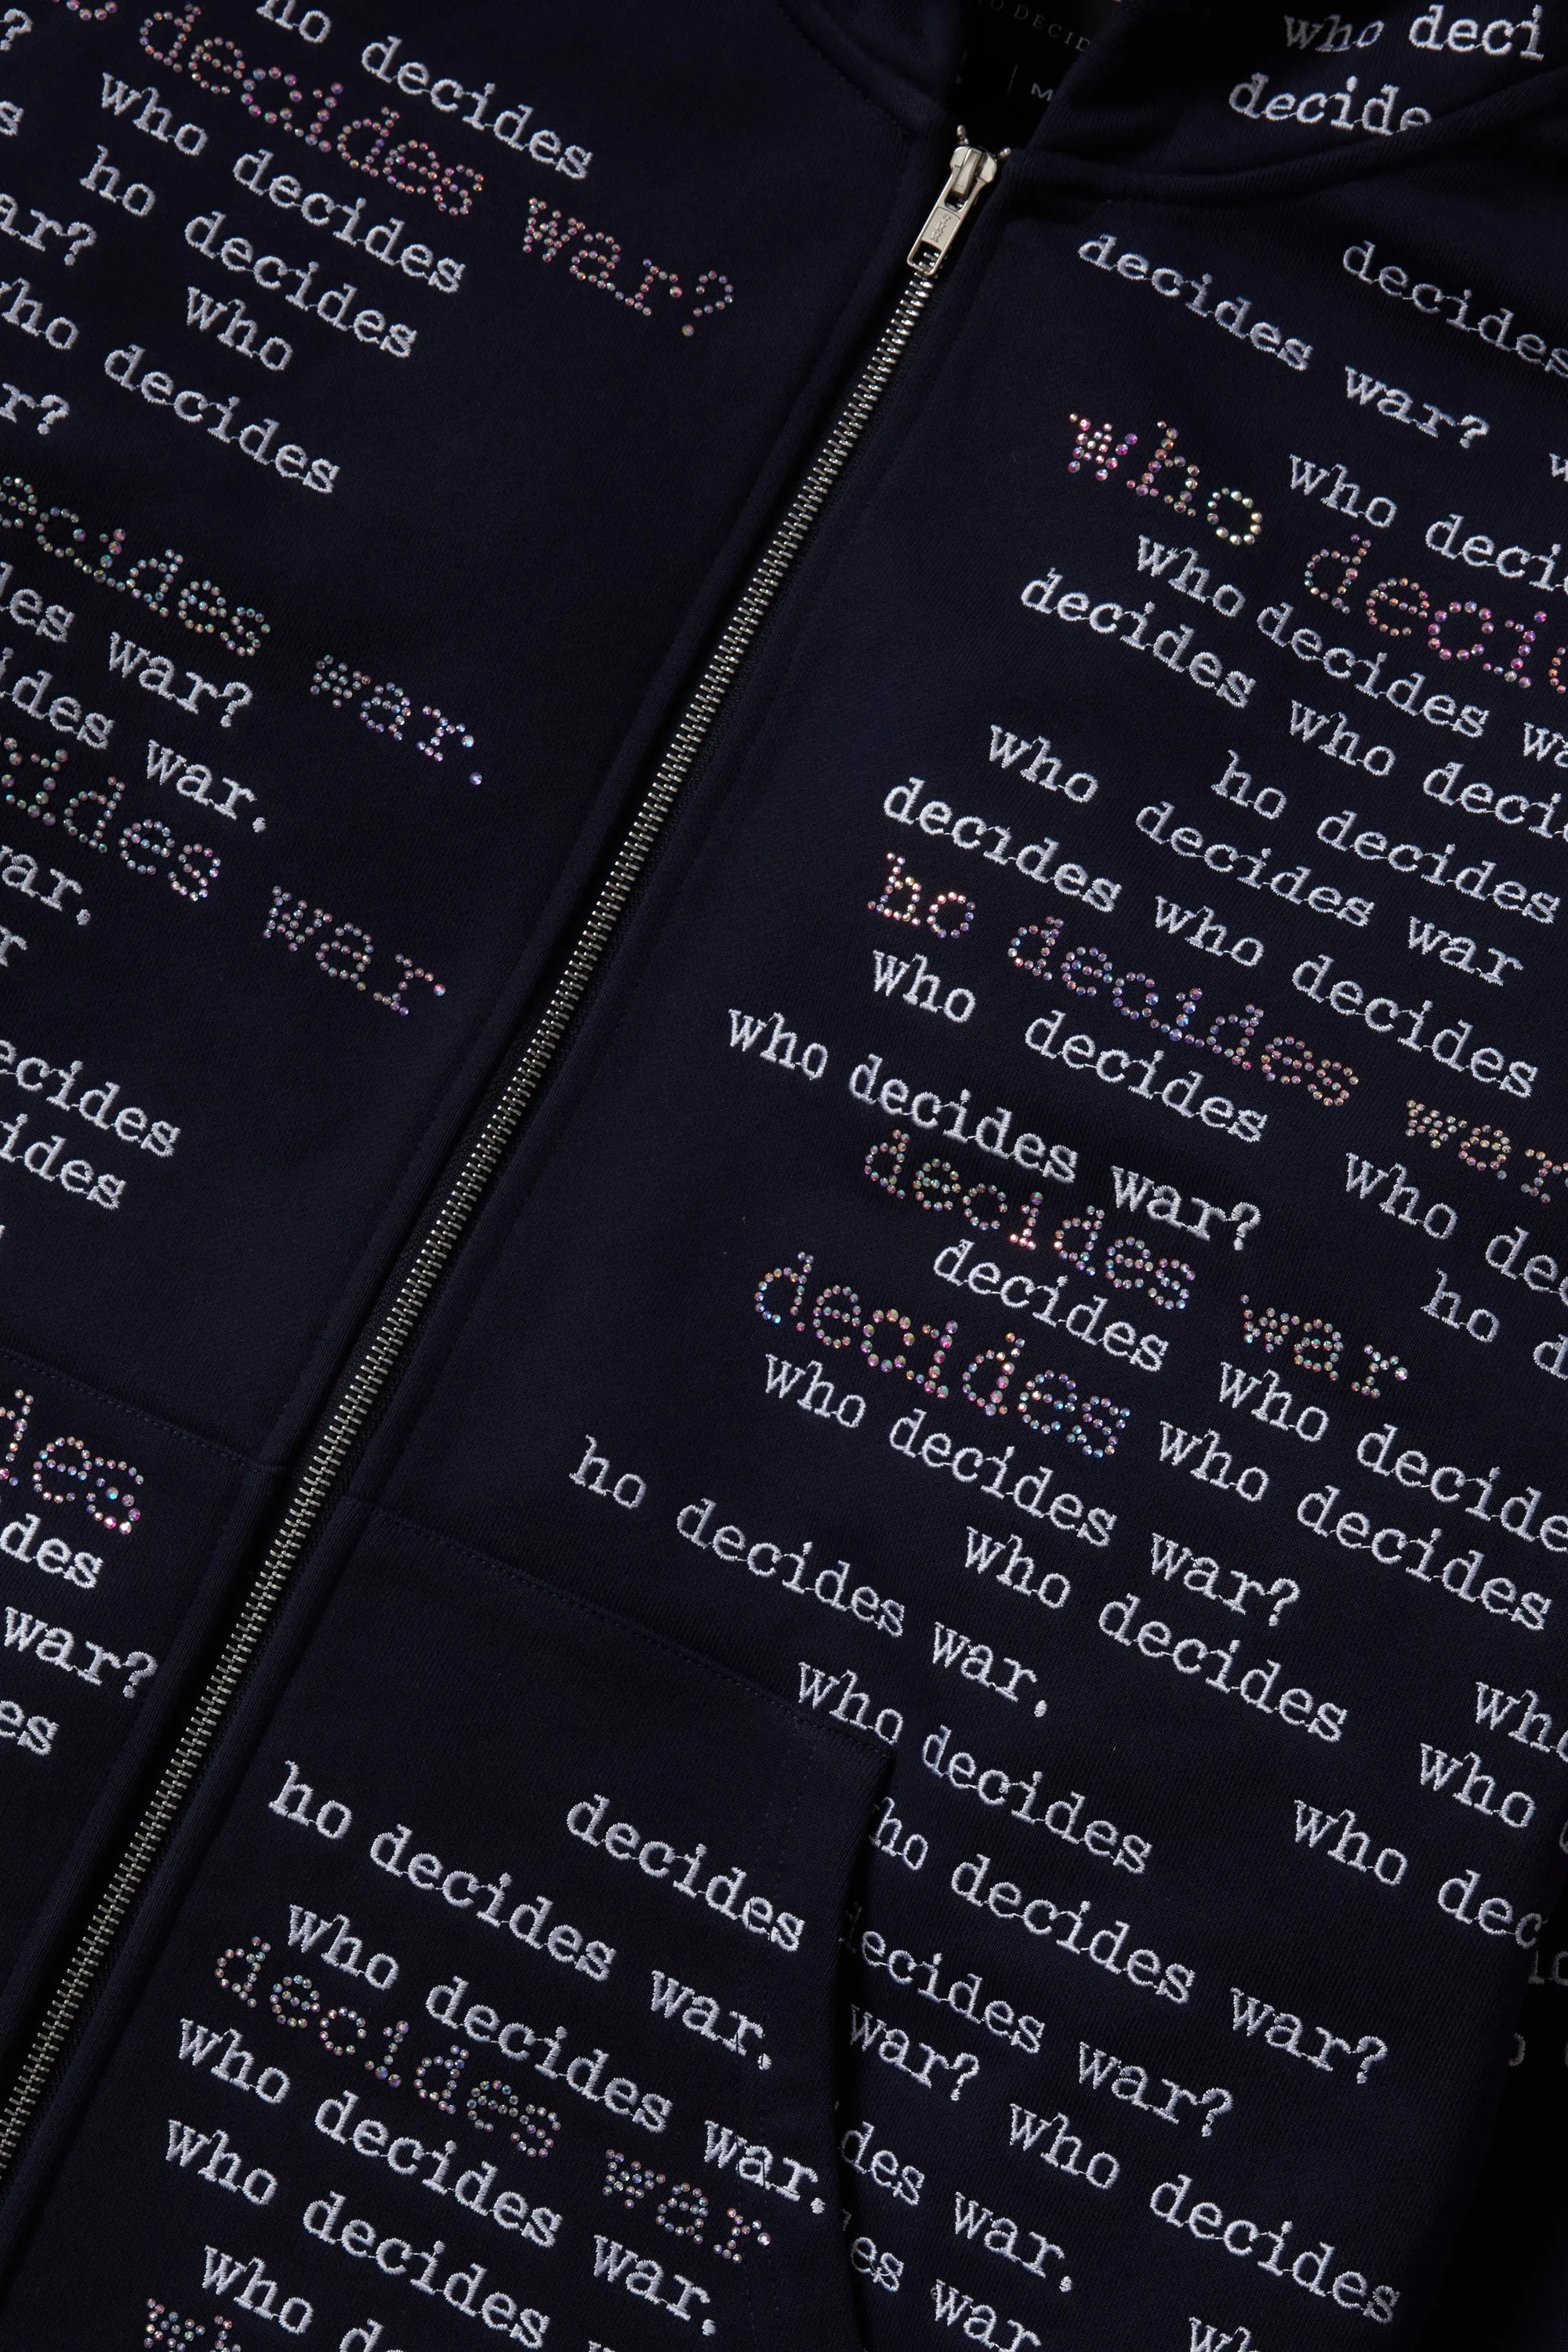 ho decides
decides war?
who decides
ho decides
ar?
who
ho decides
r?
ecides war.
des war?
ides war.
ides war.
ar.
r
ecides
ides
des
des
war?
es
O DECID
M
who deci
decide
decides
decides war?
who deci
who decid
who decides wa
decides who deci
ho decides
who decides war
decides who decides
ho decides war
who decides
who dec
who decides war?
decides war
ho d
decides who decide
decides who decides
who decides war?
ho decides war.
who decides
who
who decides
who
who dec
ho decides war?
ecides war?
war? who decides
des war.
es war
decides
ho decides war.
who decides war.
decides war
who decides war.
who decides
who de